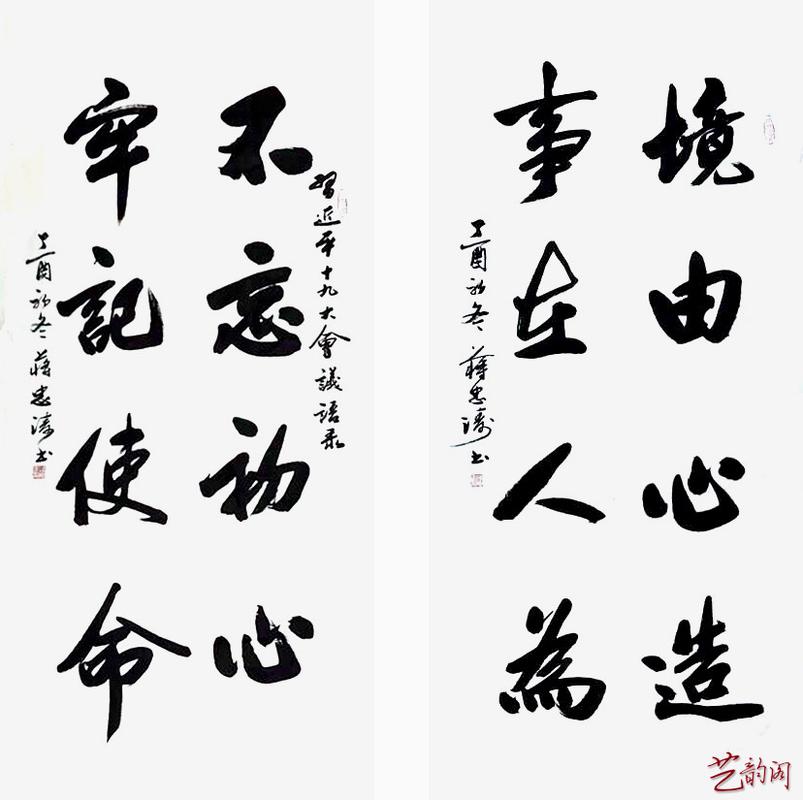 境由心造
事在人為
丁酉初冬 蒋忠涛书
習近平十九大會議语录
不忘初心
牢記使命
丁酉初冬 蒋忠涛书
艺韵阁